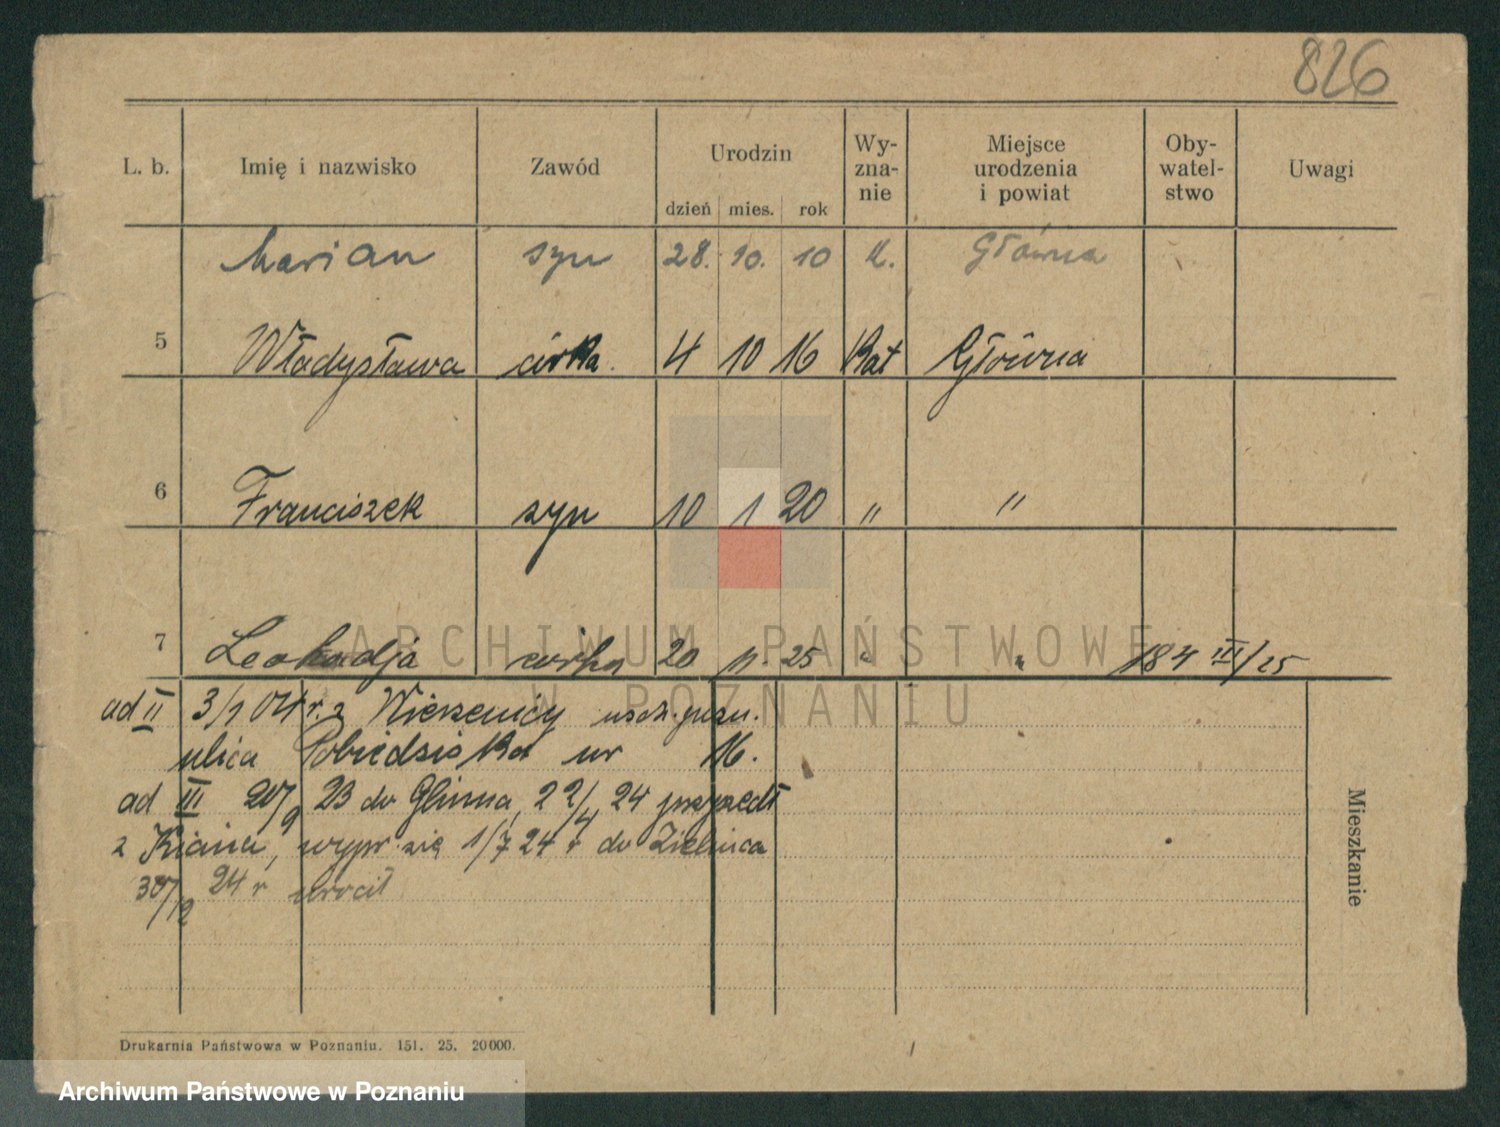 826
L. b. Imię i nazwisko Zawód Urodzin Wy-zna-nie Miejsce urodzenia i powiat Oby-watel-stwo Uwagi
dzień mies. rok
Marian syn 28. 10. 10 K. Główna
5 Władysława córka 4 10 16 Kat Główna
6 Franciszek syn 10 1 20 " "
7 Leokadja córka 20 11. 25 " " 184 III/25
ARCHIWUM PAŃSTWOWE
W POZNANIU
ad II 3/1 04 r. z Wierzenicy
ulica Pobiedziska nr 16.
ad III 20/9 23 do Glinna, 22/4 24 przyszedł
z, wypr. się 1/7 24 r do Zielinca
30/12 24 r wrócił
Mieszkanie
Drukarnia Państwowa w Poznaniu. 151. 25. 20000.
Archiwum Państwowe w Poznaniu